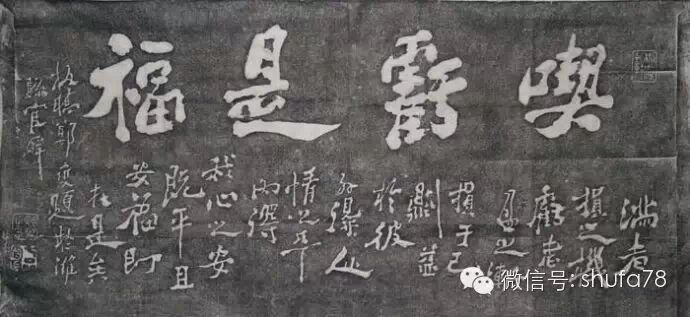 喫虧是福
滿者
損之機
虧者
盈之漸
損于己
則益
於彼
外得人
情之平
内得
我心之安
既平且
安福即
在是矣
板橋鄭燮題於濰
縣官廨
微信号: shufa78